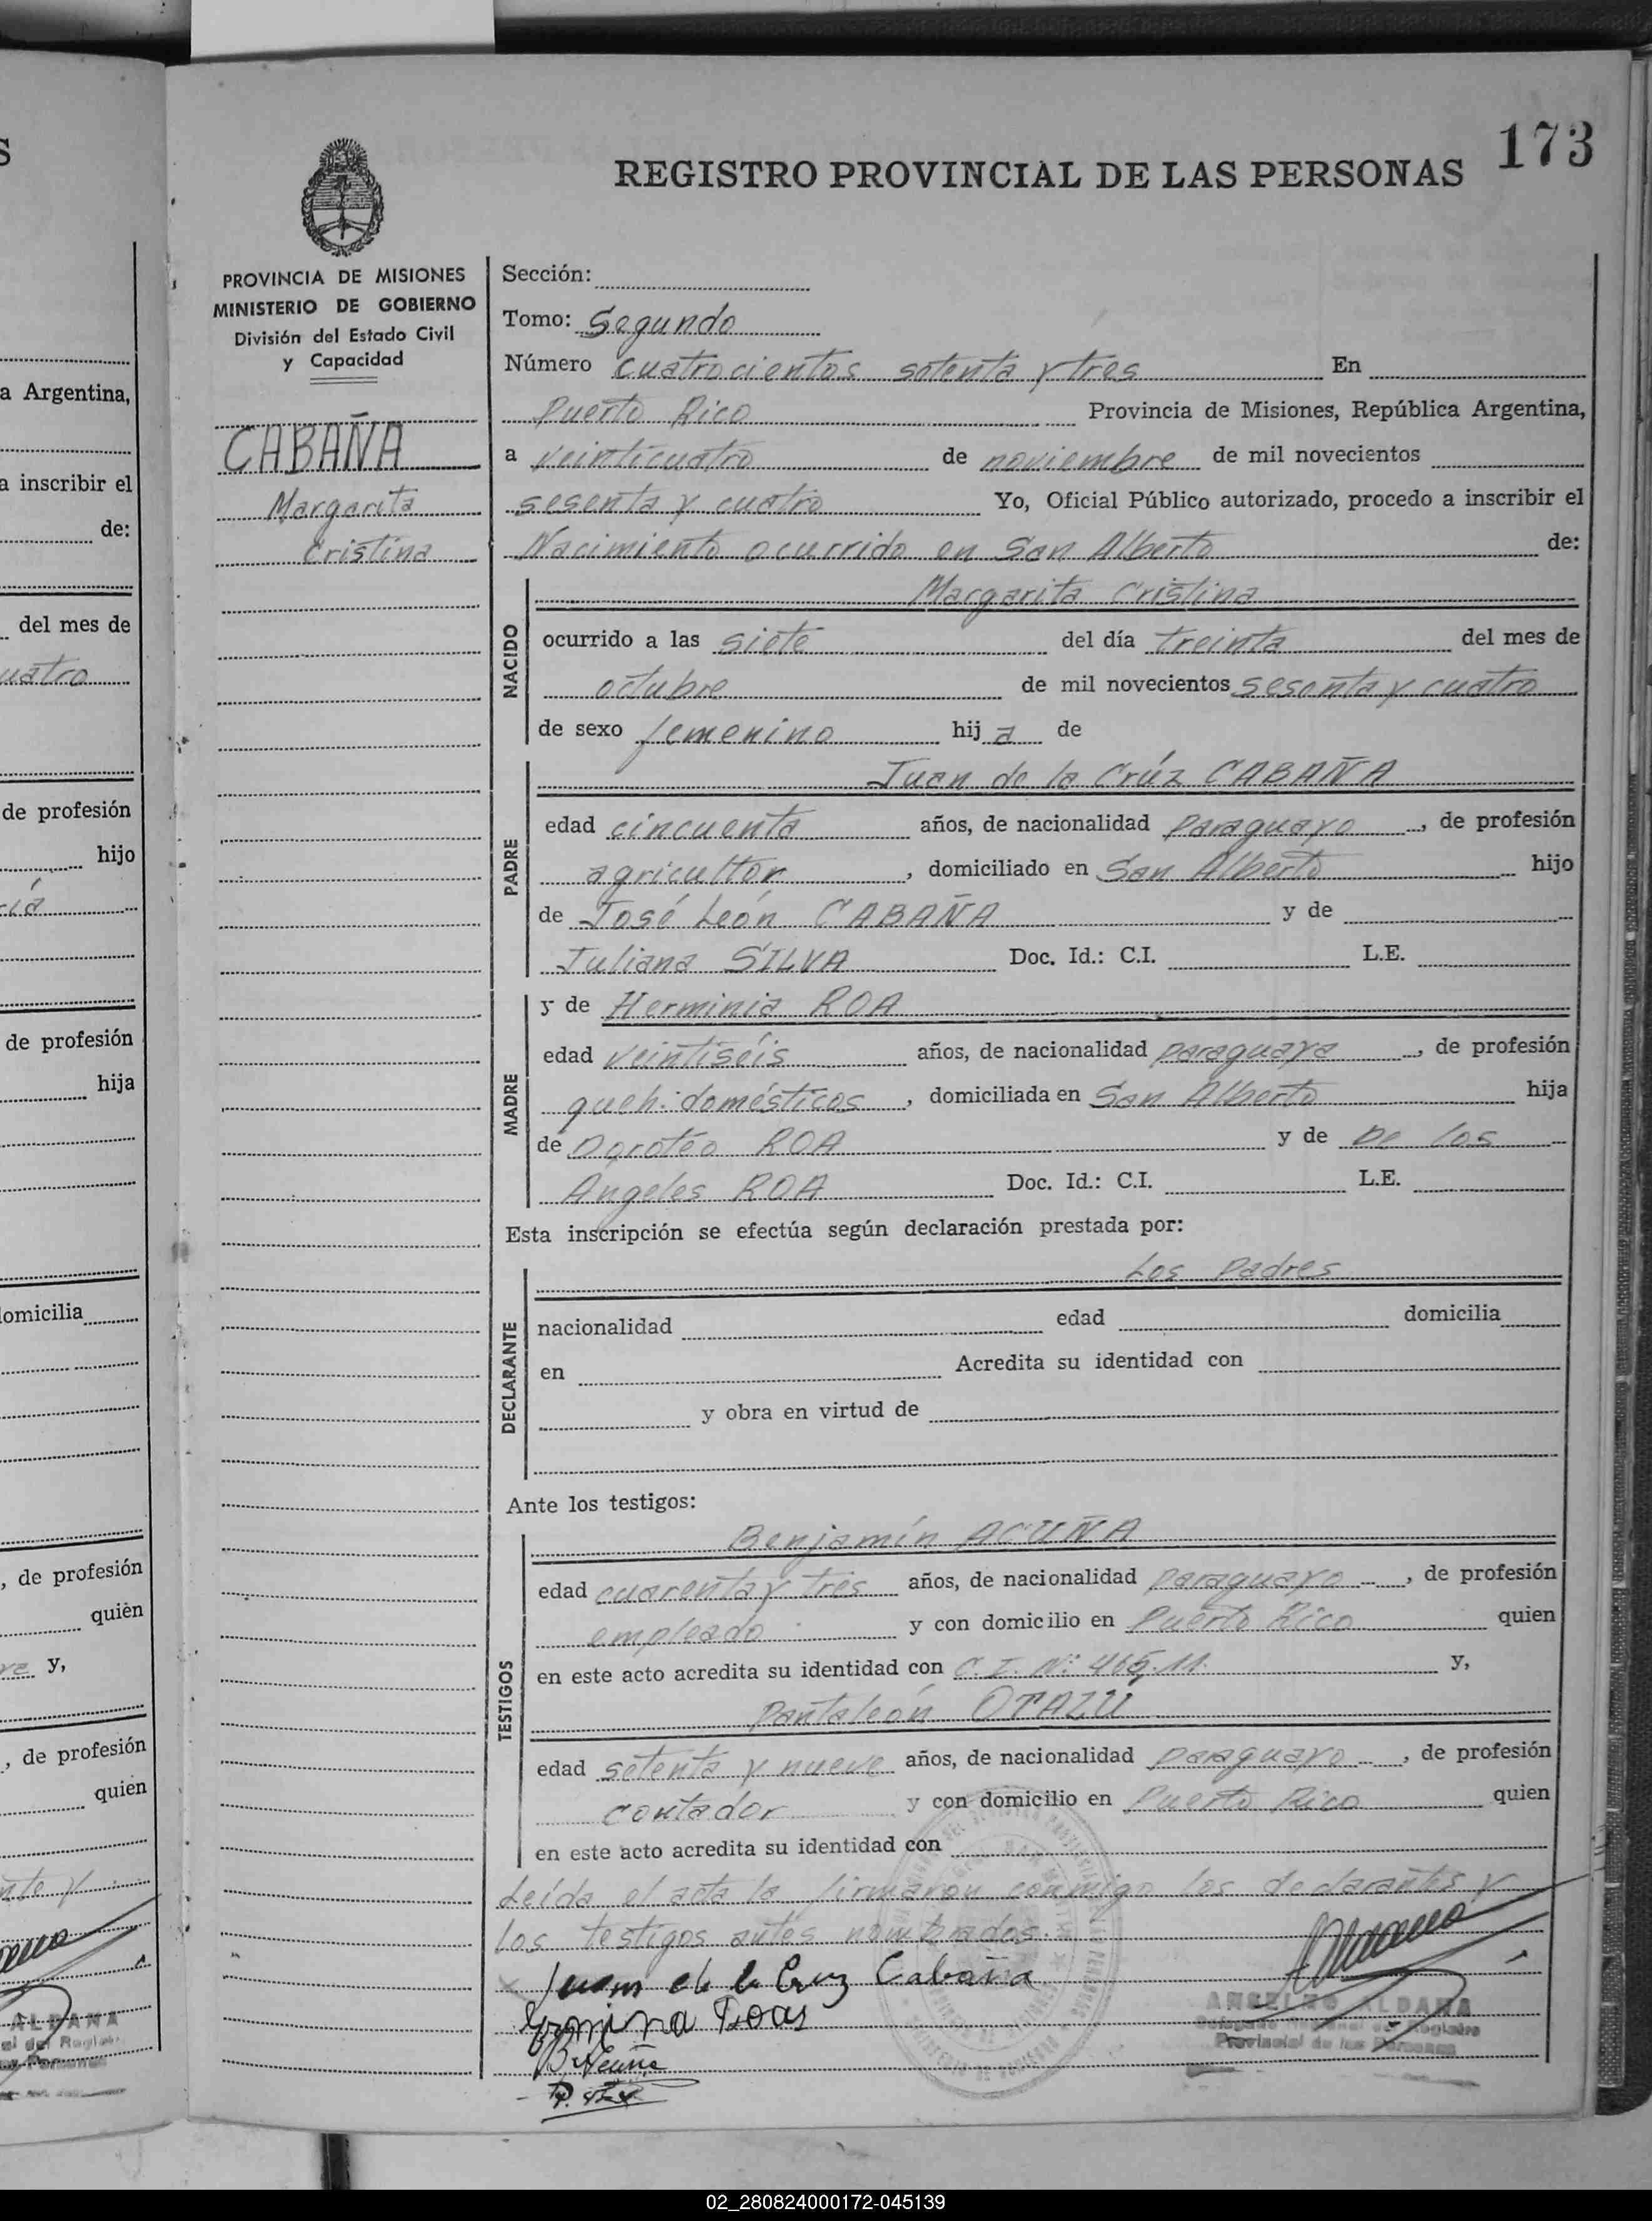 173
REGISTRO PROVINCIAL DE LAS PERSONAS
PROVINCIA DE MISIONES
MINISTERIO DE GOBIERNO
División del Estado Civil
y Capacidad
CABAÑA
Margarita
Cristina
Sección:
Tomo: Segundo
Número cuatrocientos setenta y tres En
Puerto Rico Provincia de Misiones, República Argentina,
a veinticuatro de noviembre de mil novecientos
sesenta y cuatro Yo, Oficial Público autorizado, procedo a inscribir el
Nacimiento ocurrido en San Alberto de:
NACIDO
Margarita Cristina
ocurrido a las siete del día treinta del mes de
octubre de mil novecientos sesenta y cuatro
de sexo femenino hij a de
PADRE
Juan de la Crúz CABAÑA
edad cincuenta años, de nacionalidad paraguayo, de profesión
agricultor, domiciliado en San Alberto hijo
de José León CABAÑA y de
Juliana SILVA Doc. Id.: C.I. L.E.
MADRE
y de Herminia ROA
edad veintiséis años, de nacionalidad paraguaya, de profesión
queh. domésticos, domiciliada en San Alberto hija
de Dorotéo ROA y de De los
Angeles ROA Doc. Id.: C.I. L.E.
Esta inscripción se efectúa según declaración prestada por:
DECLARANTE
Los Padres
nacionalidad edad domicilia
en Acredita su identidad con
y obra en virtud de
Ante los testigos:
TESTIGOS
Benjamín ACUÑA
edad cuarenta y tres años, de nacionalidad paraguayo, de profesión
empleado y con domicilio en Puerto Rico quien
en este acto acredita su identidad con C.I. Nº: 465.11. y,
Pantaleón OTAZÚ
edad setenta y nueve años, de nacionalidad paraguayo, de profesión
contador y con domicilio en Puerto Rico quien
en este acto acredita su identidad con
Leída el acta la firmaron conmigo los declarantes y
los testigos antes nombrados.
Juan de la Cruz Cabaña
Ermina Roas
B Acuña
ANSELMO ALDANA
Provincial de las Personas
a Argentina,
a inscribir el
de:
del mes de
uatro
de profesión
hijo
ría
de profesión
hija
domicilia
, de profesión
quién
y,
, de profesión
quien
ALDANA
02_280824000172-045139